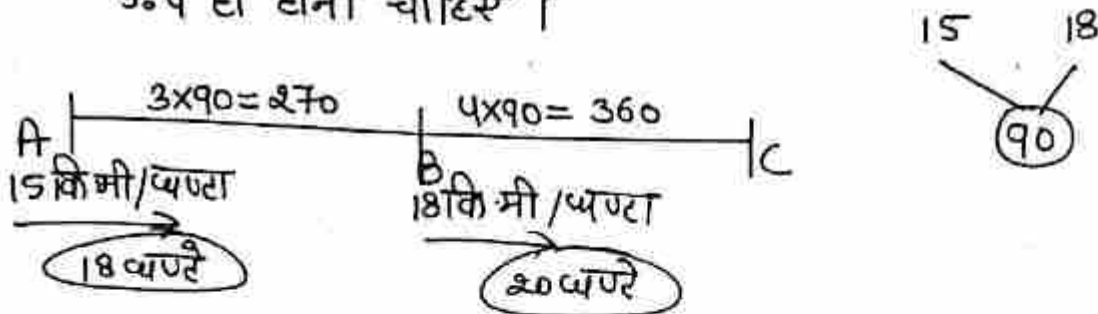 3:4 ही होना चाहिए ।
15 18
90
3×90=270 4×90= 360
A B C
15 कि मी/घण्टा 18 कि.मी /घण्टा
18 घण्टे 20 घण्टे